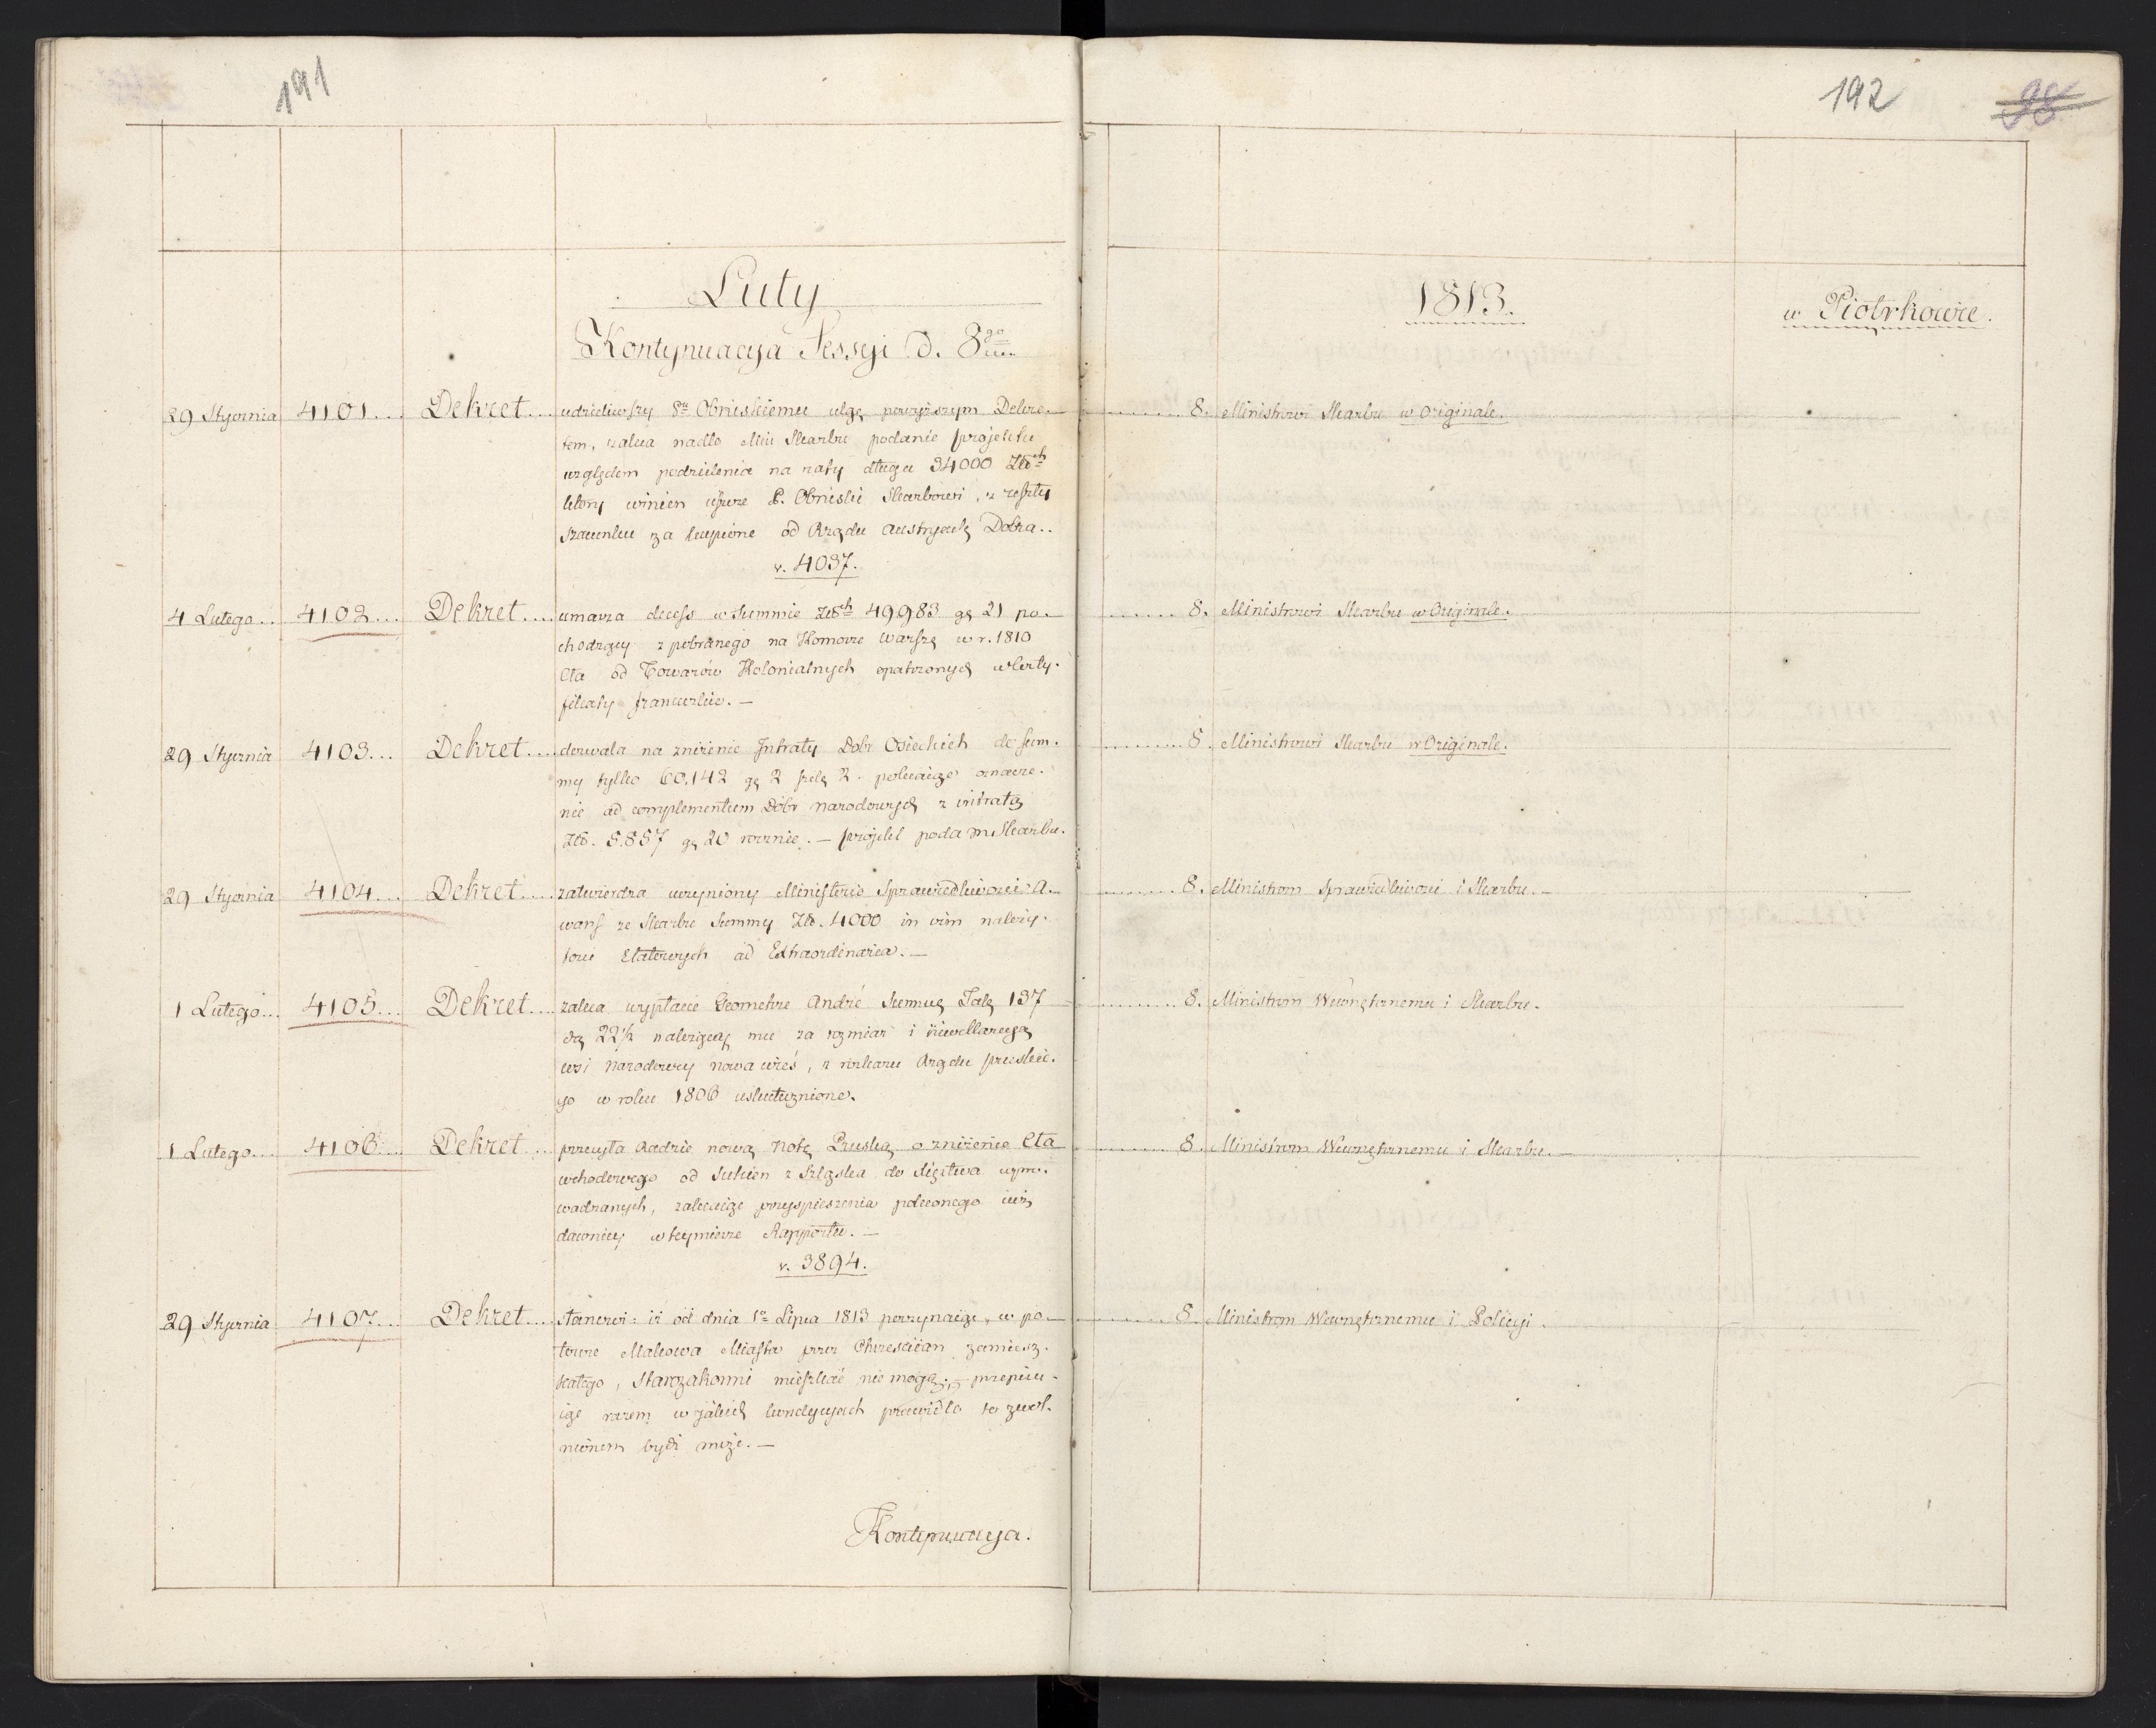 191
192
98
Luty
1813.
w Piotrkowie.
Kontynuacya Sessyi D. 8go
29 Stycznia 4101... Dekret... udzieliwszy Pu Obniskiemu ulgę powyższym Dekre-
tem, zaleca nadto Min Skarbu podanie projektu
względem podzielenia na raty długu 34000 Złch
który winien ieszcze P. Obniski Skarbowi, z reszty
szacunku za kupione od Rządu Austryack Dobra..
v. 4037.
8. Ministrowi Skarbu w Originale.
4 Lutego.. 4102... Dekret.... umarza decess w Summie Złch 49,983 gr 21 po-
chodzący z pobranego na Komorze Warsz w r. 1810
Cła od Towarów Kolonialnych opatrzonych w Certy-
fikaty francuzkie. —
8. Ministrowi Skarbu w Originale.
29 Stycznia 4103... Dekret.... dozwala na zniżenie Intraty Dobr Osieckich do sum-
my tylko 60,142 gr 2 szel 2. polecaiąc oznacze-
nie ad complementum Dóbr narodowych z intratą
Złp. 5.857 gr 20 rocznie. — projekt poda M. Skarbu.
8. Ministrowi Skarbu w Originale.
29 Stycznia 4104... Dekret.... zatwierdza uczyniony Ministrowi Sprawiedliwości A-
wans ze Skarbu Summy Złp. 4000 in vim należy-
tości Etatowych ad Extraordinaria. —
8. Ministrom Sprawiedliwości i Skarbu. —
1 Lutego... 4105... Dekret.... zaleca wypłacić Geometrze André Summę Tal 137
dg 22½ należącą mu za rozmiar i niwellacyą
wsi Narodowey Nowa wieś, z rozkazu Rządu pruskie-
go w roku 1806 uskutecznione.
8. Ministrom Wewnętrznemu i Skarbu.
1 Lutego... 4106... Dekret... przesyła Radzie nową Notę Pruską o zniżenie Cła
wchodowego od Sukien z Szląska do Xięstwa wpro-
wadzanych, zalecaiąc przyspieszenia poleconego iuż
dawniey w teymierze Rapportu. —
v. 3894.
8. Ministrom Wewnętrznemu i Skarbu. —
29 Stycznia 4107... Dekret.... stanowi: iż od dnia 1o Lipca 1813 poczynaiąc, w po-
łowie Makowa Miasta przez Chrześcian zamiesz-
kałego, Starozakonni mieszkać nie mogą; — przepisu-
iąc razem w jakich kondycyach prawidło to zwol-
nionem bydź może. —
8. Ministrom Wewnętrznemu i Policyi.
Kontynuacya.